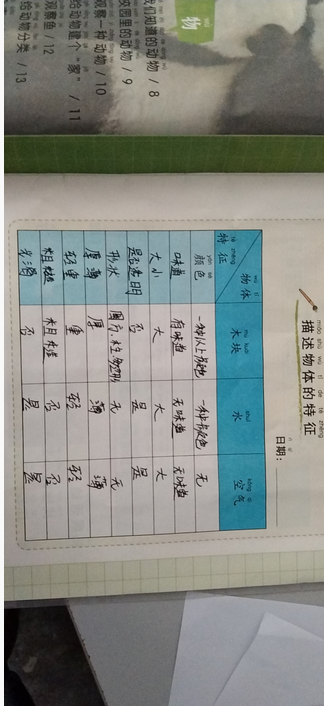 物
我们知道的动物 / 8
校园里的动物 / 9
观察一种动物 / 10
给动物建个“家” / 11
观察鱼 / 12
给动物分类 / 13
miáo shù wù tǐ de tè zhēng
描述物体的特征
日期：
物体 木块 水 空气
特征
颜色 一种以上颜色 一种颜色 无
味道 有味道 无味道 无味道
大小 大 大
是否透明 否 是 是
形状 无 无
厚薄 厚 薄 薄
轻重 重 轻 轻
粗糙 粗糙 否 否
光滑 否 是 是